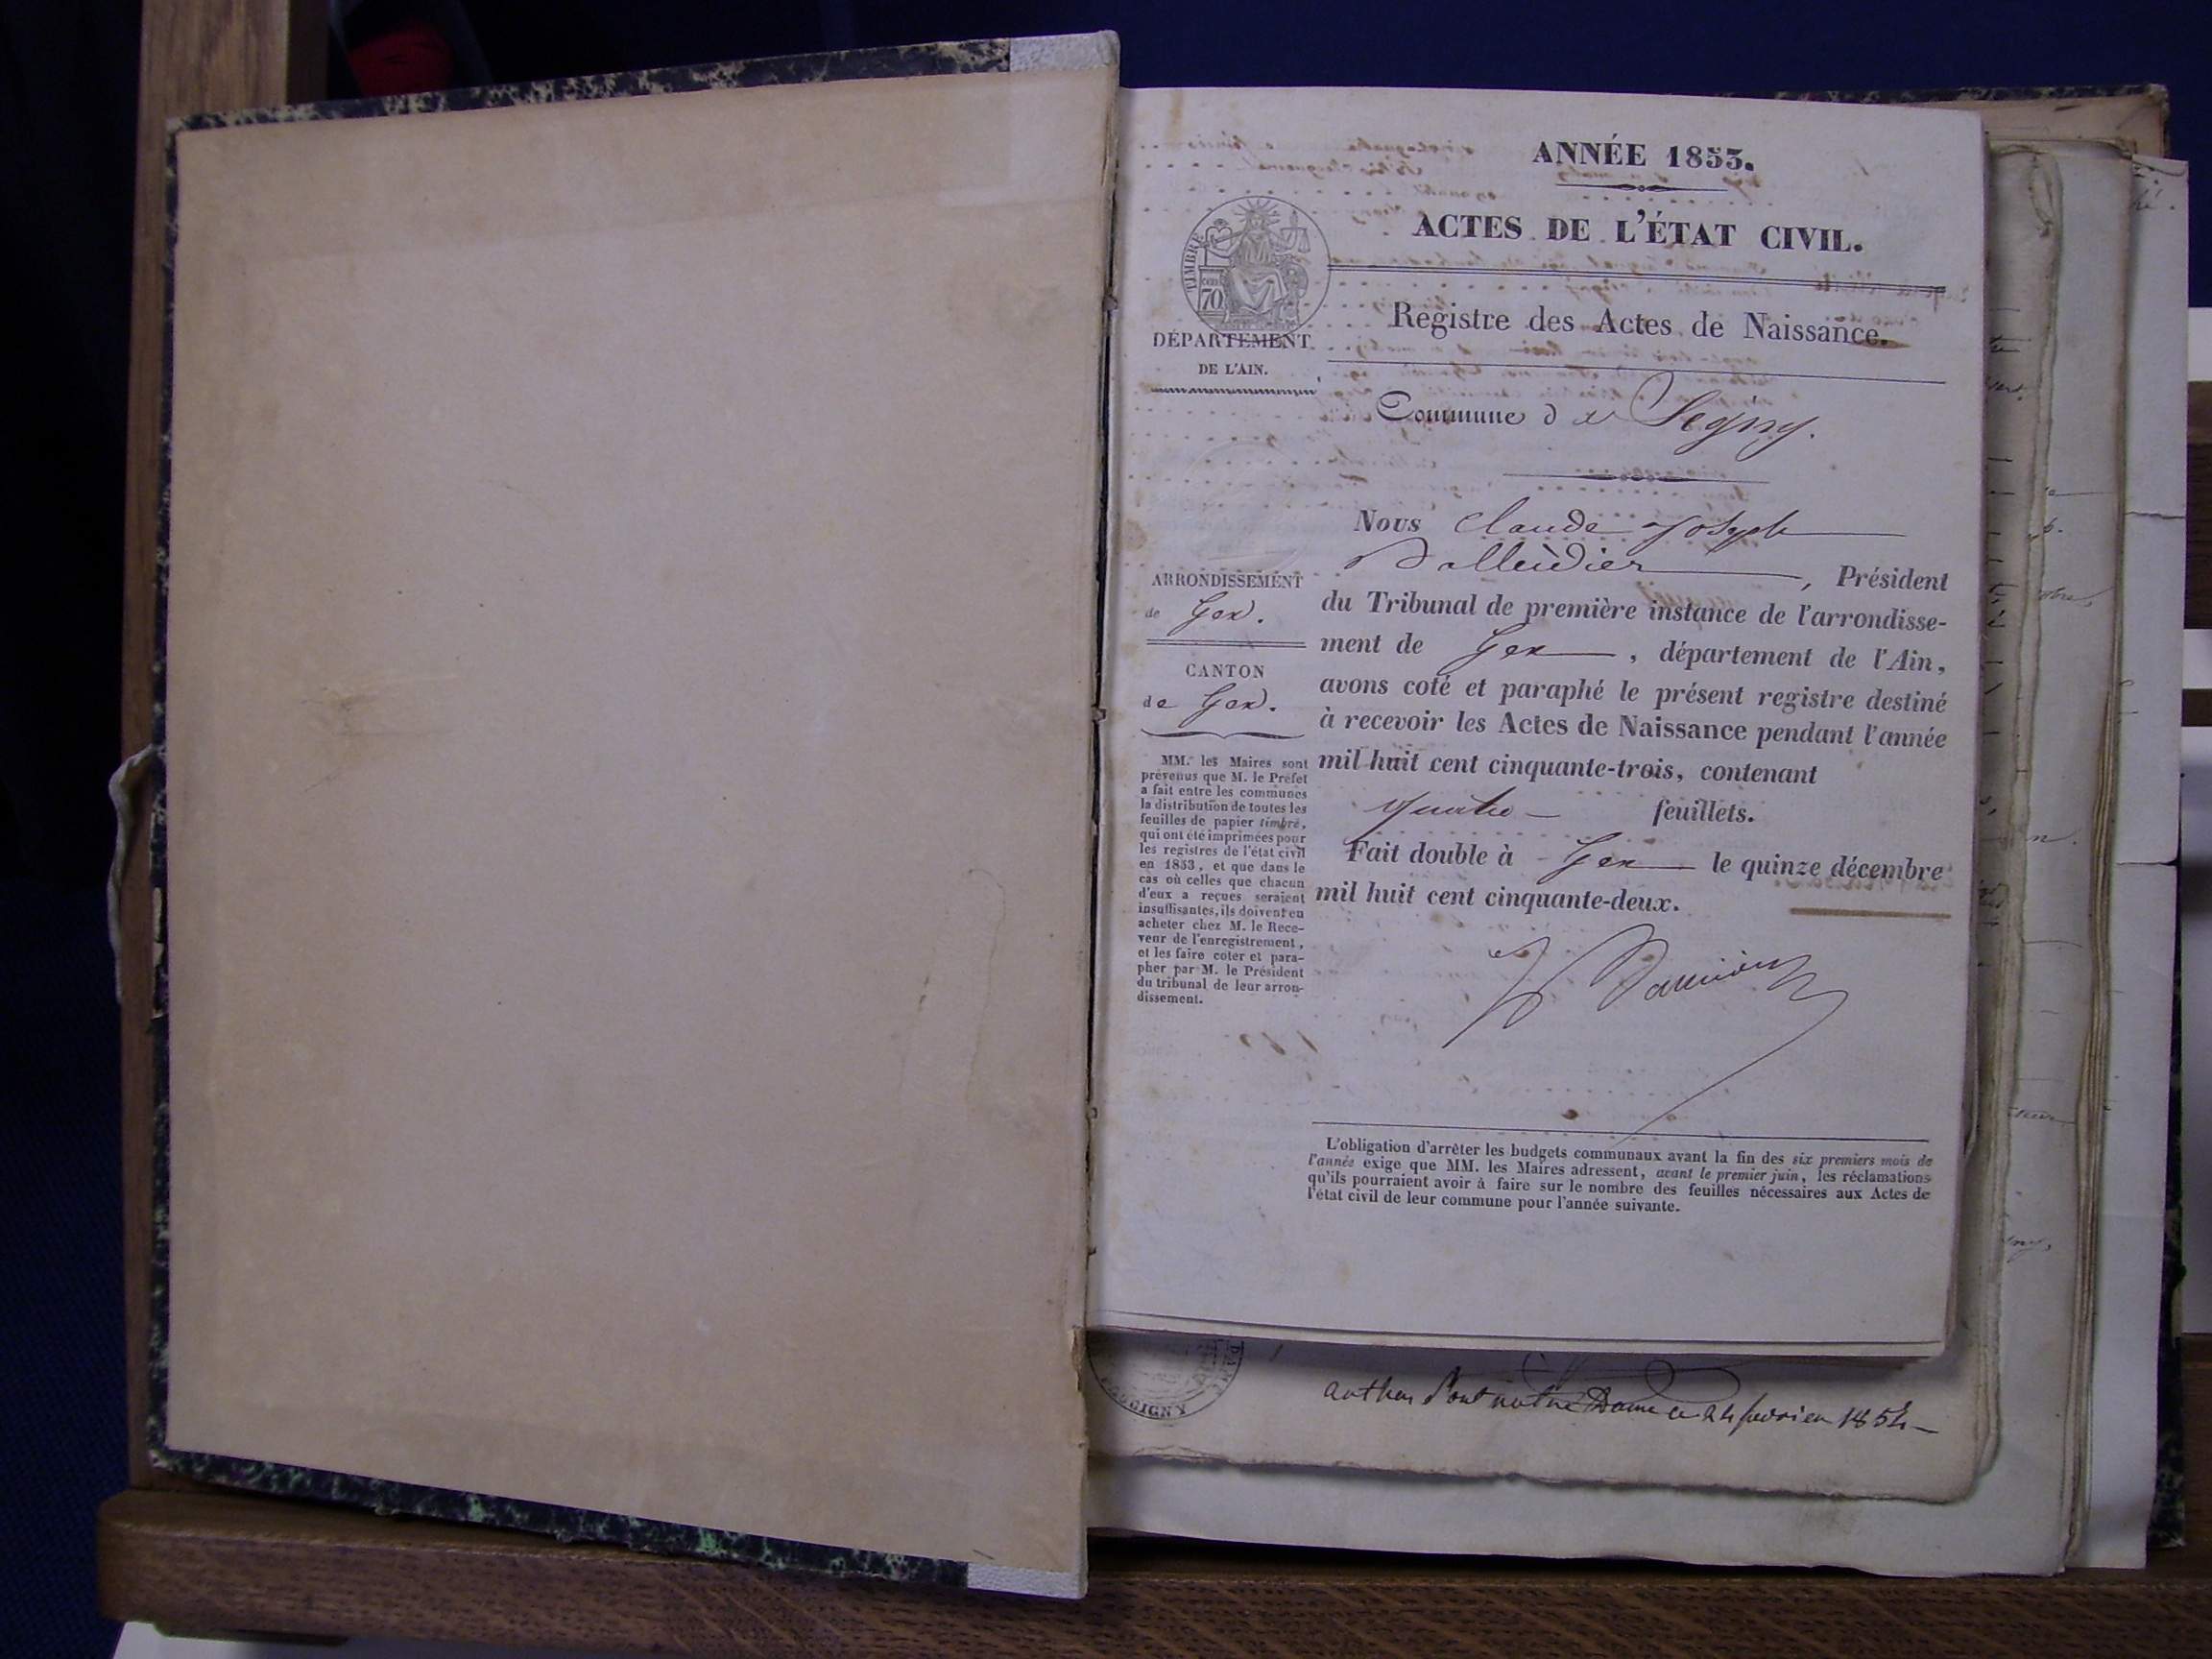 ANNÉE 1853.
ACTES DE L'ÉTAT CIVIL.
TIMBRE
70
DÉPARTEMENT
DE L'AIN.
Registre des Actes de Naissance.
Commune de Segny.
ARRONDISSEMENT
de Gex.
CANTON
de Gex.
MM. les Maires sont
prévenus que M. le Préfet
a fait entre les communes
la distribution de toutes les
feuilles de papier timbré,
qui ont été imprimées pour
les registres de l'état civil
en 1853, et que dans le
cas où celles que chacun
d'eux a reçues seraient
insuffisantes, ils doivent en
acheter chez M. le Rece-
veur de l'enregistrement,
et les faire coter et para-
pher par M. le Président
du tribunal de leur arron-
dissement.
Nous Claude Joseph
, Président
du Tribunal de première instance de l'arrondisse-
ment de Gex, département de l'Ain,
avons coté et paraphé le présent registre destiné
à recevoir les Actes de Naissance pendant l'année
mil huit cent cinquante-trois, contenant
quatre feuillets.
Fait double à Gex le quinze décembre
mil huit cent cinquante-deux.
L'obligation d'arrêter les budgets communaux avant la fin des six premiers mois de
l'année exige que MM. les Maires adressent, avant le premier juin, les réclamations
qu'ils pourraient avoir à faire sur le nombre des feuilles nécessaires aux Actes de
l'état civil de leur commune pour l'année suivante.
notre Dame ce 24 février 1854